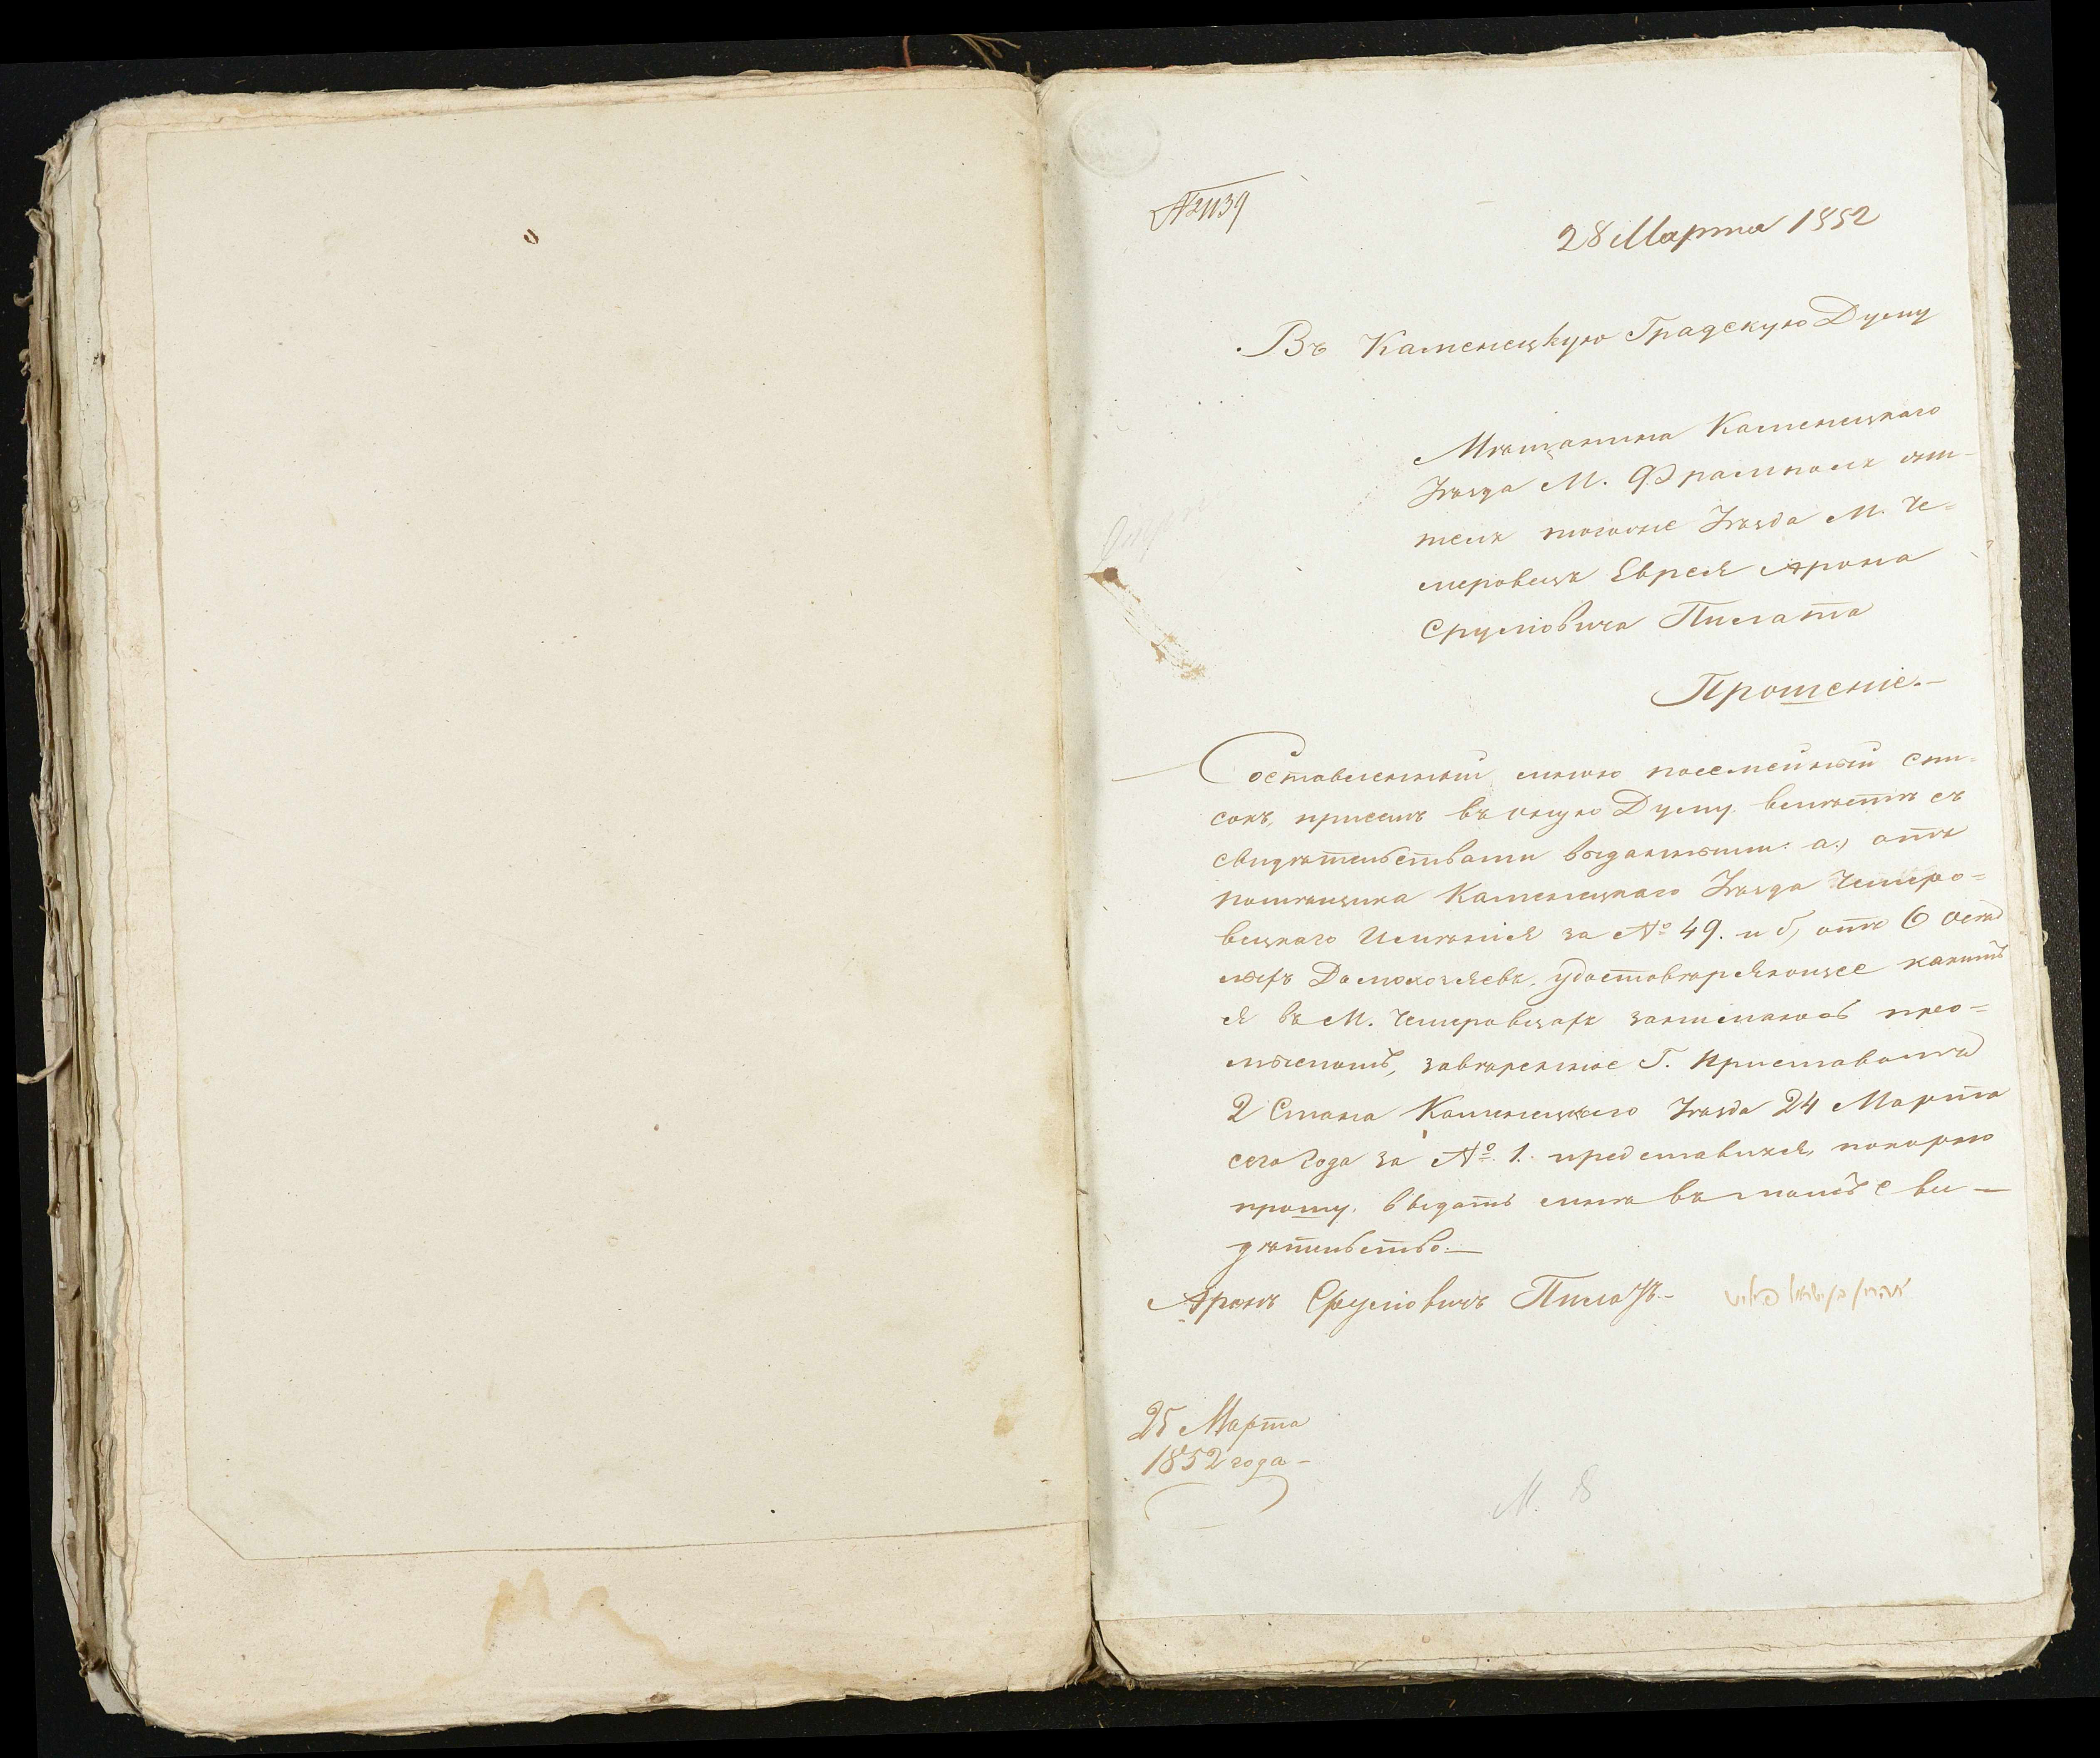 №1139
28 Марта 1852
Въ Каменецкую Градскую Думу
Мѣщанина Каменецкаго
Уѣзда М. Фрамполя жи-
теля тогоже Уѣзда М. Че=
меровецъ Еврея Арона
Срулiовича Пилата
Прошенiе.—
Составленный мною посемейный спи=
сокъ, при семъ въ оную Думу вмѣстѣ съ
свидѣтельствами выданными: а.) отъ
помѣщика Каменецкаго Уѣзда Чемеро=
вецкаго Имѣнiя за № 49. и б, отъ 6 осѣд
лыхъ Домохозяевъ, удостовѣряющее какимъ
я въ М. Чемеровцахъ занимаюсь про=
мысломъ, завѣренное Г. Приставомъ
2 Стана Каменецкаго Уѣзда 24 Марта
сего года за №. 1. представляя, покорно
прошу, выдать мнѣ въ томъ сви—
дѣтельство.—
Аронъ Срулiовичъ Пилатъ.— אהרן בן ישראל פילאט
25 Марта
1852 года —
М. 8